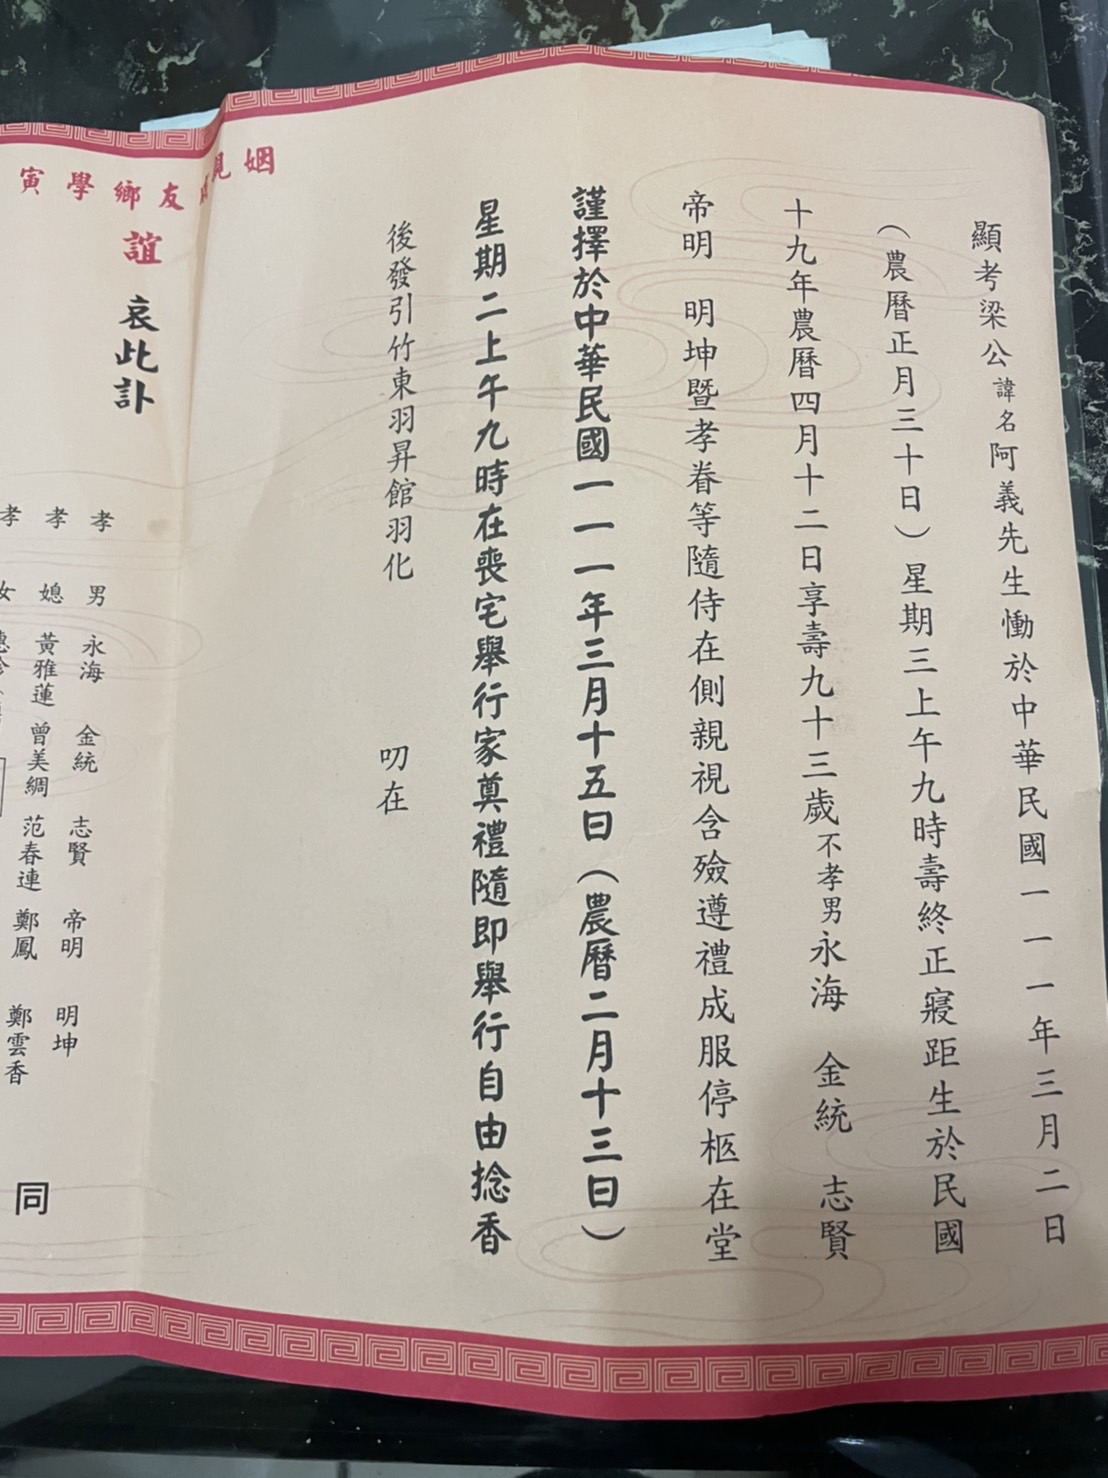 顯考梁公諱名阿義先生慟於中華民國一一一年三月二日
（農曆正月三十日）星期三上午九時壽終正寢距生於民國
十九年農曆四月十二日享壽九十三歲不孝男永海　金統　志賢
帝明　明坤暨孝眷等隨侍在側親視含殮遵禮成服停柩在堂
謹擇於中華民國一一一年三月十五日（農曆二月十三日）
星期二上午九時在喪宅舉行家奠禮隨即舉行自由捻香
後發引竹東羽昇館羽化　叨在
姻
友鄉學寅
誼　哀此訃
孝男　永海　金統　志賢　帝明　明坤
孝媳　黃雅蓮　曾美綢　范春連　鄭鳳　鄭雲香
孝女
同